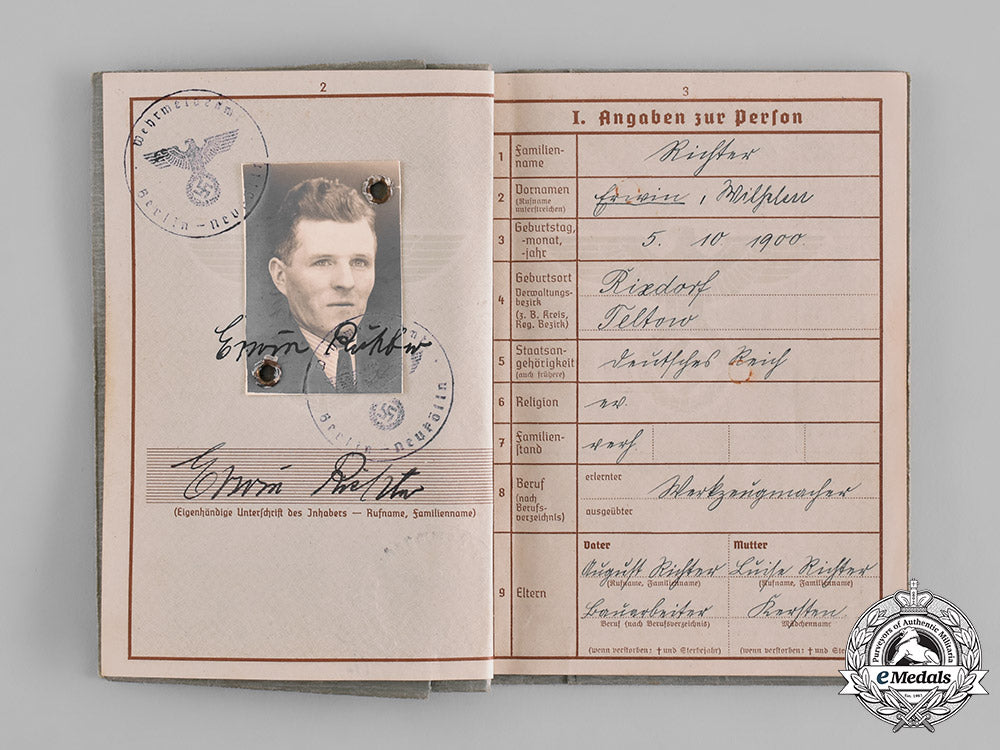 2
Wehrmeldeamt
Berlin-Neukölln
Erwin Richter
Berlin-Neukölln
Erwin Richter
(Eigenhändige Unterschrift des Inhabers — Rufname, Familienname)
3
I. Angaben zur Person
1 Familien-
name
Richter
2 Vornamen
(Rufname
unterstreichen)
Erwin, Wilhelm
3 Geburtstag,
-monat,
-jahr
5. 10 1900.
4 Geburtsort
Verwaltungs-
bezirk
(z. B. Kreis,
Reg. Bezirk)
Rixdorf
Teltow
5 Staatsan-
gehörigkeit
(auch frühere)
Deutsches Reich
6 Religion
ev.
7 Familien-
stand
verh.
8 Beruf
(nach
Berufs-
verzeichnis)
erlernter
Werkzeugmacher
ausgeübter
9 Eltern
Vater
August Richter
(Rufname, Familienname)
Bauarbeiter
Beruf (nach Berufsverzeichnis)
(wenn verstorben: † und Sterbejahr)
Mutter
Luise Richter
(Rufname, Familienname)
Kersten
Mädchenname
(wenn verstorben: † und Ster
Purveyors of Authentic Militaria
eMedals
Est. 1967